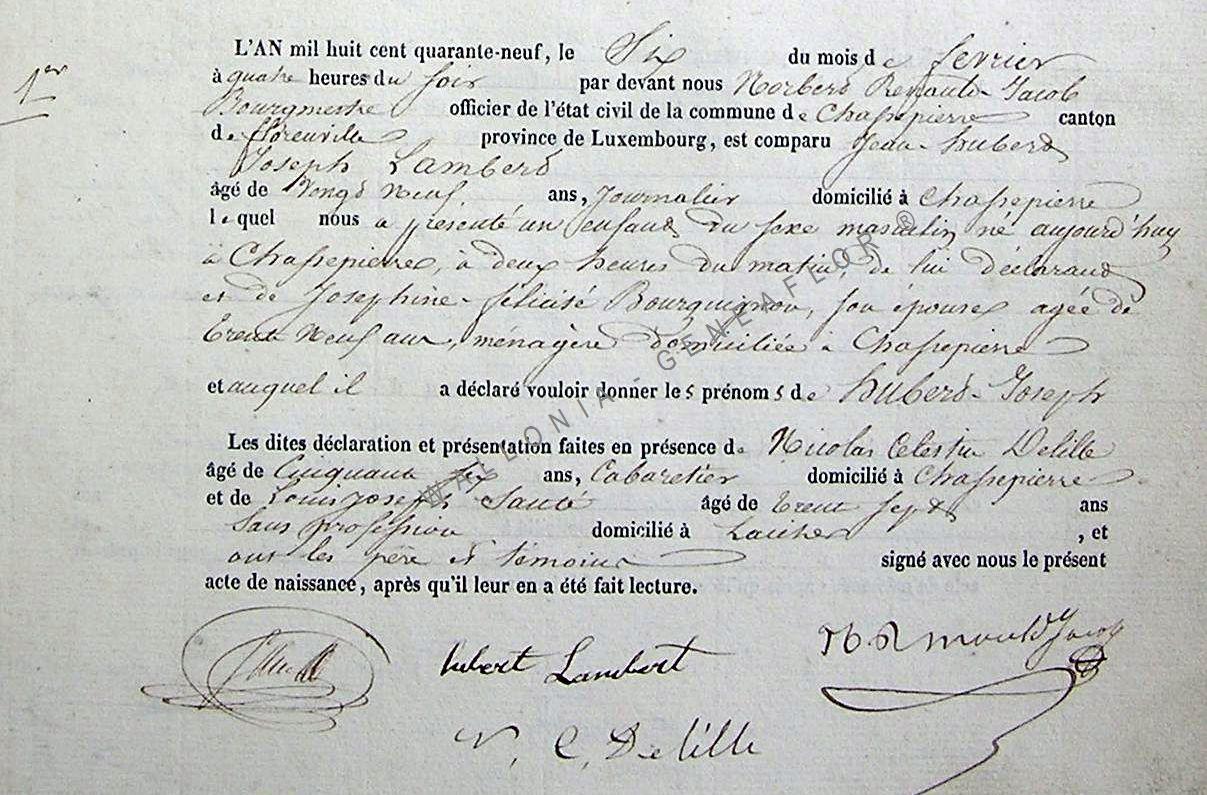 1er
L'AN mil huit cent quarante-neuf, le Six du mois de fevrier
à quatre heures du soir par devant nous Norbert Jacob
Bourgmestre officier de l'état civil de la commune de Chassepierre canton
de florenville province de Luxembourg, est comparu Jean-hubert
Joseph Lambert
âgé de Vingt Neuf ans, Journalier domicilié à Chassepierre
lequel nous a présenté un enfant du sexe masculin né aujourd'huy
à Chassepierre, à deux heures du matin, de lui déclarant
et de Josephine-félicité Bourguignon, son épouse agée de
trente Neuf ans, ménagère domiciliée à Chassepierre
et auquel il a déclaré vouloir donner les prénoms de hubert-Joseph
Les dites déclaration et présentation faites en présence de Nicolas Celestin Delille
âgé de Cinquante six ans, Cabaretier domicilié à Chassepierre
et de Louis Joseph âgé de trente sept ans
Sans profession domicilié à , et
ont les père et témoins signé avec nous le présent
acte de naissance, après qu'il leur en a été fait lecture.
hubert Lambert
Jacob
N. C. Delille
WALLONIA - GENEAFLOR ®